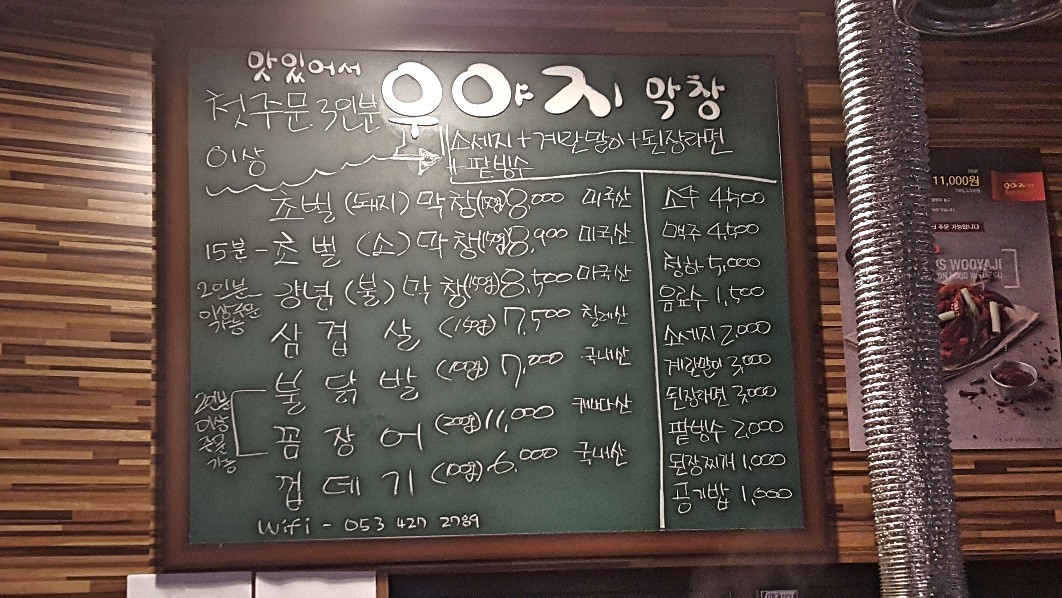 맛있어서 우야지 막창
첫주문 3인분
이상
소세지+계란말이+된장라면
+팥빙수
초벌 (돼지) 막창 8,000 미국산
15분-초벌 (소) 막창 8,900 미국산
2인분
이상주문
가능
양념 (불) 막창 8,500 미국산
삼겹살 7,500 칠레산
불닭발 7,000 국내산
2인분
이상
주문
가능
꼼장어 11,000 캐나다산
껍데기 6,000 국내산
Wifi - 053 427 2789
소주 4,500
맥주 4,500
청하 5,000
음료수 1,500
소세지 2,000
계란말이 3,000
된장라면 3,000
팥빙수 2,000
된장찌개 1,000
공기밥 1,000
11,000원
우야지
주문 가능합니다
WOOYAJI